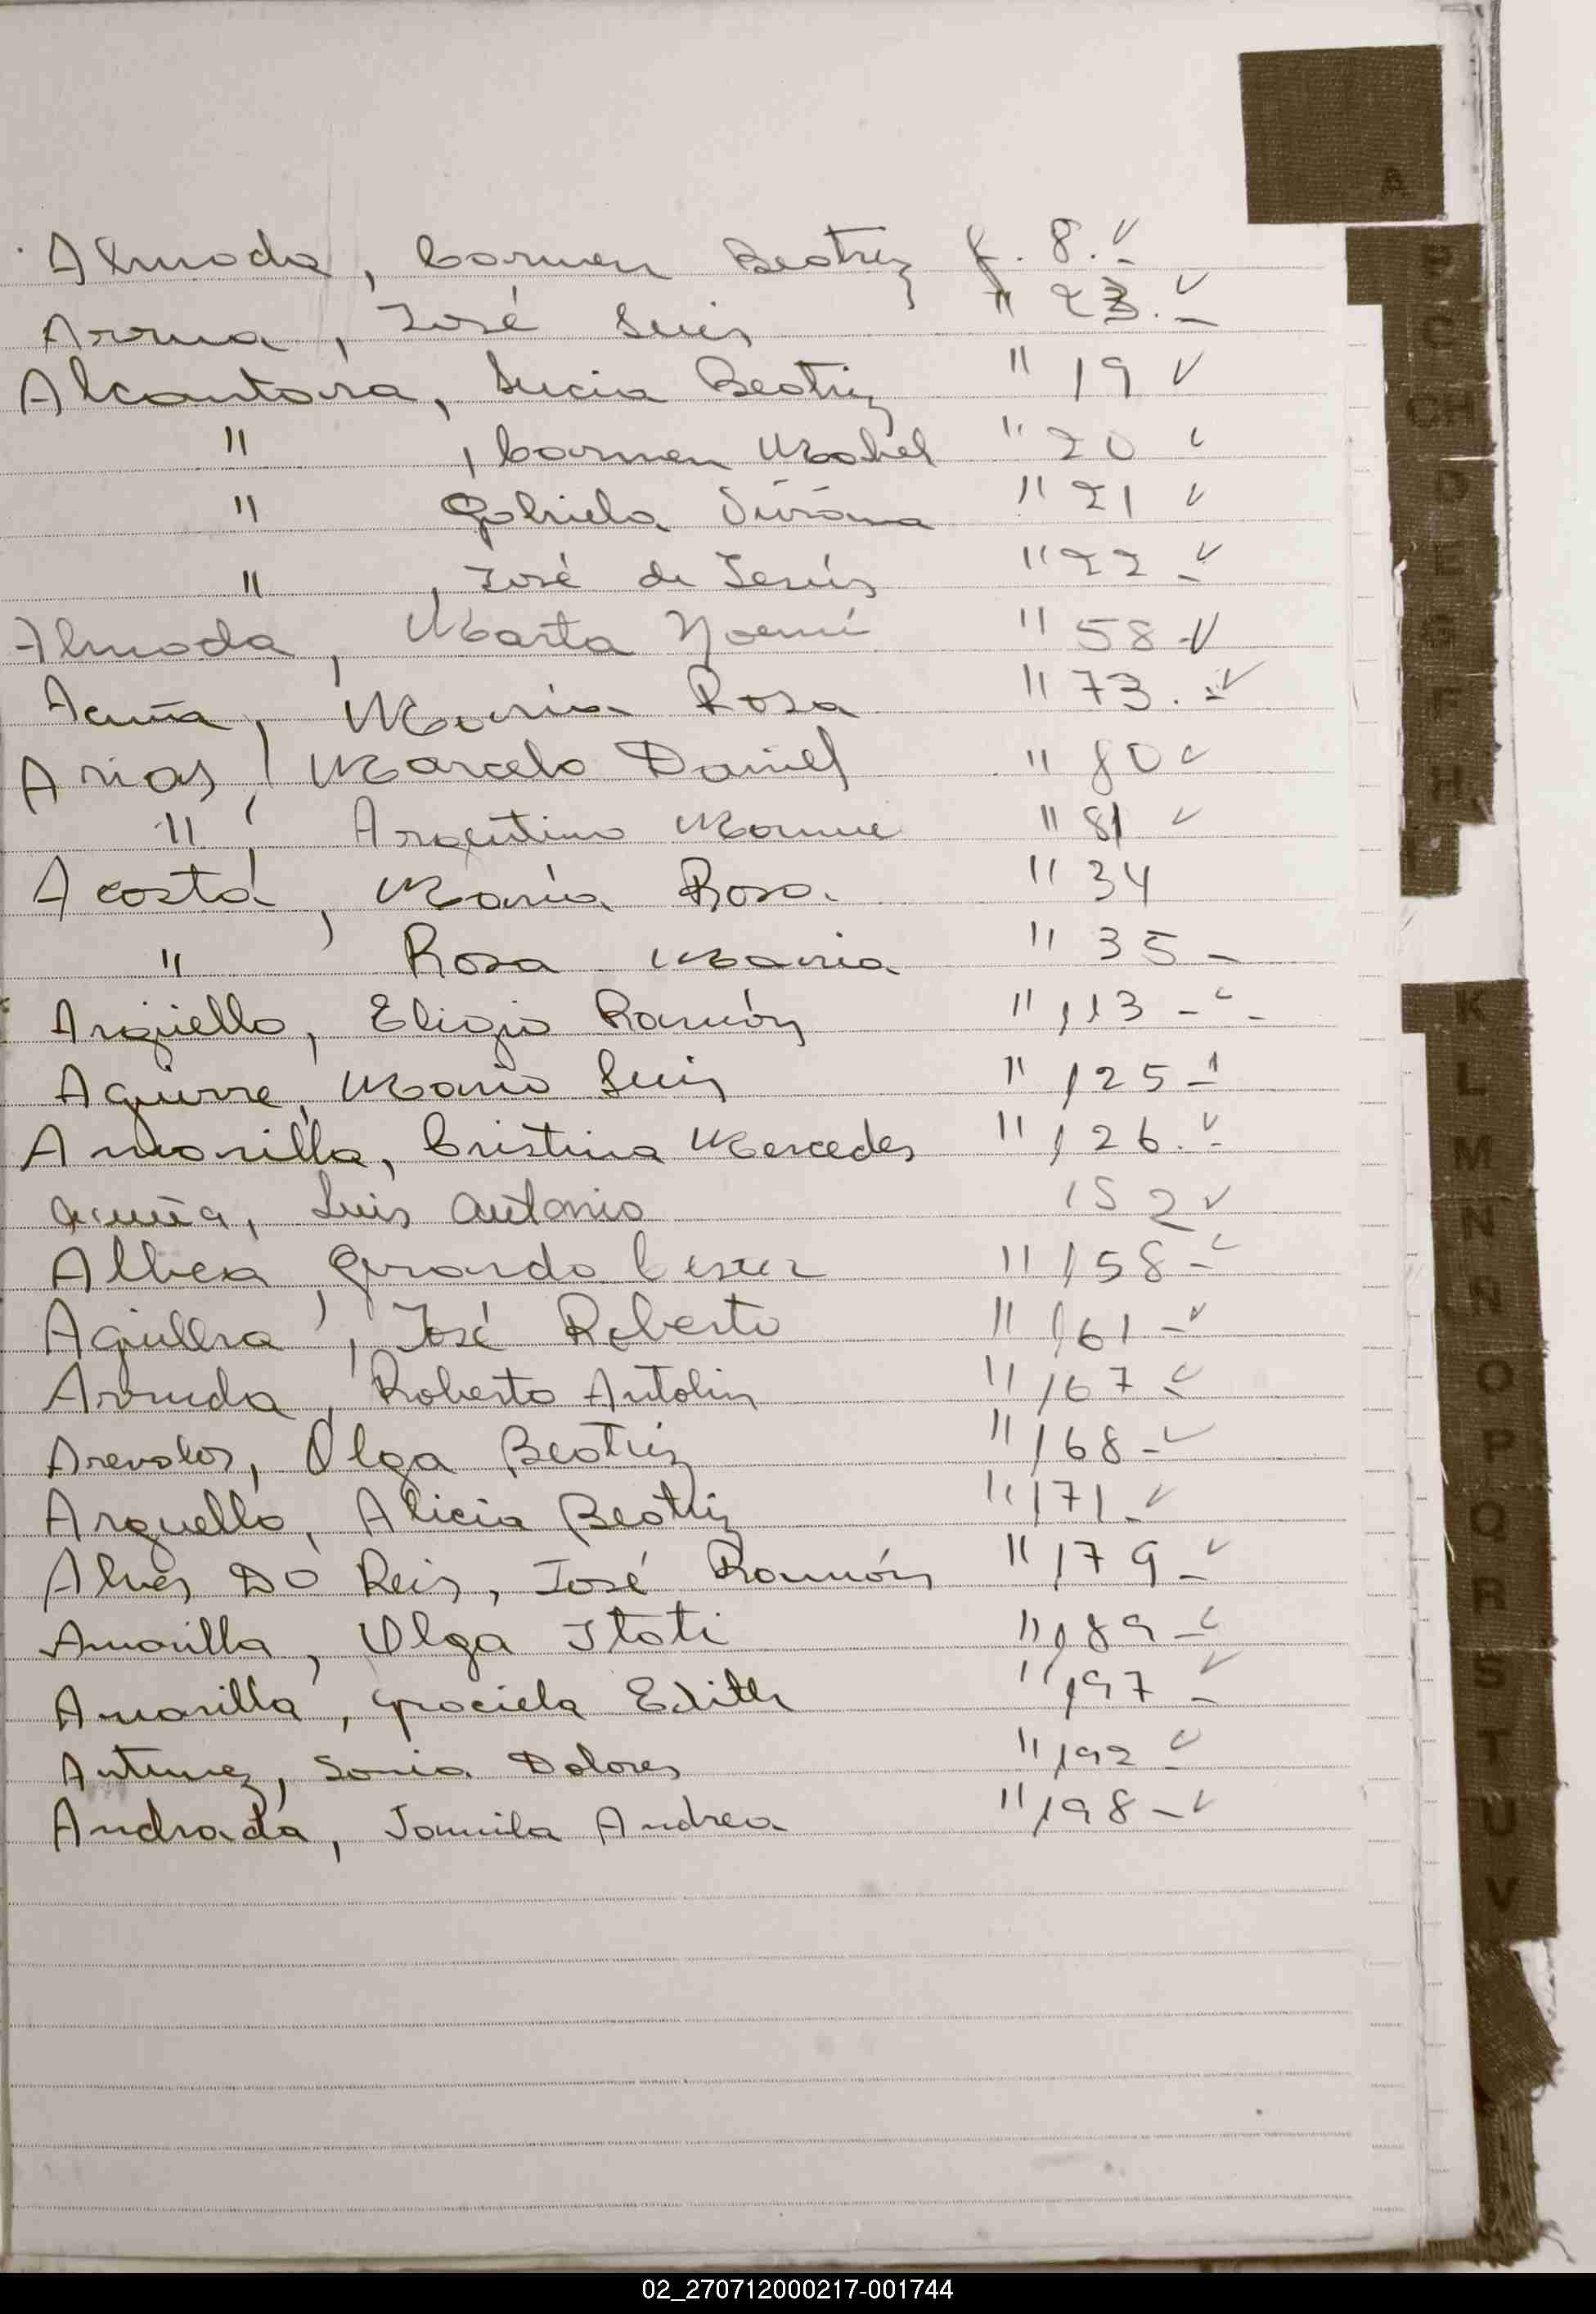 A
Almada, Carmen Beatriz f. 8.-✓
Arrua, José Luis " 23.-✓
Alcantara, Lucia Beatriz " 19 ✓
" , Carmen Mabel " 20 ✓
" Gabriela Viviana " 21 ✓
" , José de Jesús " 22 -✓
Almada, Marta Noemí " 58 -✓
Acuña, María Rosa " 73.-✓
Arias, Marcelo Daniel " 80 ✓
" , Argentino " 81 ✓
Acosta, María Rosa " 34
" Rosa Maria " 35 -
Argüello, Eligio Ramón " 113 - ✓ -
Aguirre, Mario Luis " 125 -
Amarilla, Cristina Mercedes " 126.-✓
Acuña, Luis Antonio 152 ✓
Gerardo Cesar " 158 -✓
Aguilera, José Roberto " 161 -✓
Arruda, Roberto Antolin " 167 -✓
Arevalos, Olga Beatriz " 168 -✓
Arguello, Alicia Beatriz " 171 -✓
Alves Do Reis, José Ramón " 179 -✓
Amarilla, Olga Itati " 189 -✓
Amarilla, Graciela Edith " 197 -✓
Antunez, Sonia Dolores " 192 -✓
Andrada, Jamila Andrea " 198 -✓
B
C
CH
D
E
F
H
K
L
M
N
Ñ
O
P
Q
R
S
T
U
V
02_270712000217-001744